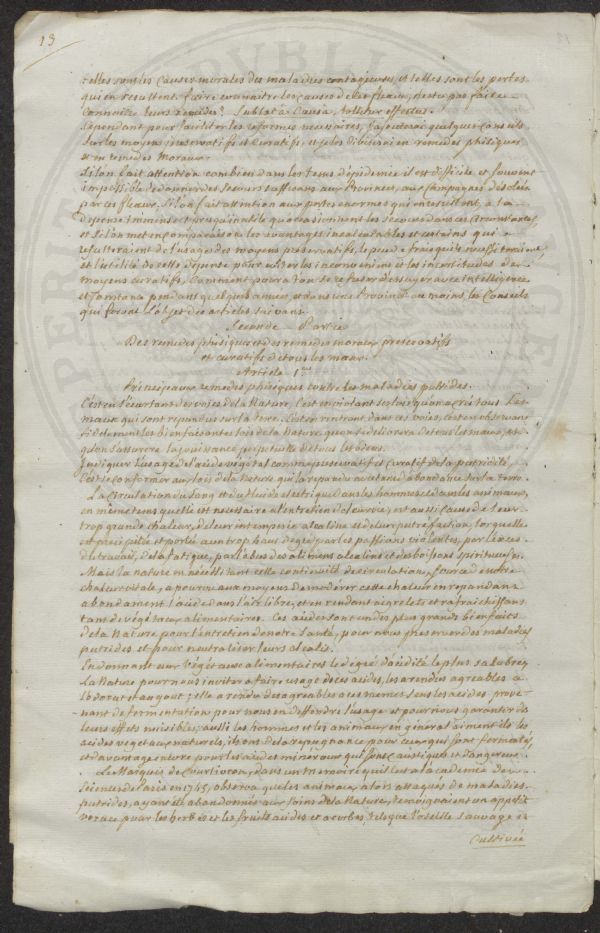 13
telles sont les causes morales des maladies contagieuses, et telles sont les pertes
qui en resultent. faire connaitre les causes de ces fleaux, n'est ce pas faire
connoitre leurs remedes? Sublatâ Causâ, tollitur effectus.
Cependant pour faciliter les reformes necessaires, j'ajouterai quelques conseils
sur les moyens preservatifs et Curatifs, et je les diviserai en remedes phisiques
et en remedes moraux.
Si l'on fait attention combien dans les tems d'épidemie il est difficile et souvent
impossible de donner des secours suffisans aux Provinces, aux Campagnes desolées
par ces fleaux. Si l'on fait attention aux pertes enormes qui en resultent, à la
depense immense et presqu'inutile qu'occasionnent les secours dans ces Circonstances,
et si l'on met en comparaison les avantages incalculables et certains qui
resulteroient de l'usage des moyens preservatifs, le peu de frais qu'ils necessiteroient,
et l'utilité de cette dépense pour eviter les inconveniens et les incertitudes des
moyens curatifs, Comment pourra t'on se refuser d'essayer avec intelligence
et constance pendant quelques années, et dans une Province au moins, les Conseils
qui feront l'objet des articles suivans.
Seconde Partie
Des remedes phisiques et des remedes moraux preservatifs
et curatifs de tous les maux.
Article 1.er
Principaux remedes phisiques contre les maladies putrides.
C'est en s'ecartant des voies de la Nature, c'est en violant ses loix qu'on a créé tous les
maux qui sont repandus sur la terre. C'est en rentrant dans ces voies, c'est en observant
fidelement les bienfaisantes loix de la Nature qu'on se delivrera de tous les maux, et
qu'on s'assurera la jouissance perpetuelle de tous les biens.
Indiquer l'usage de l'acide végétal comme preservatif et curatif de la putridité,
C'est se conformer aux loix de la Nature qui l'a repandu avec tant d'abondance sur la terre.
La Circulation du sang et du fluide electrique dans les hommes et dans les animaux,
en même tems qu'elle est necessaire à l'entretien de leur vie, est aussi cause de leur
trop grande chaleur, de leur intemperie alcaline et de leur putrefaction, lorsqu'elle
est precipitée et portée à un trop haut degré par les passions violentes, par l'exces
de travail, de la fatigue, par l'abus des alimens alcalins et des boissons spiritueuses.
Mais la nature en nécessitant cette continuité de circulation, source de notre
chaleur vitale, a pourvu aux moyens de moderer cette chaleur en repandant
abondament l'acide dans l'air libre, et en rendant aigrelets et rafraichissans
tant de végétaux alimentaires. Ces acides sont un des plus grands bienfaits
de la Nature pour l'entretien de notre santé, pour nous preserver des maladies
putrides et pour neutraliser leurs alcalis.
En donnant aux végétaux alimentaires le degré d'acidité le plus salubre,
la Nature pour nous inviter à faire usage de ces acides, les a rendus agreables à
l'odorat et au gout; elle a rendu desagreables à ces memes sens les acides prove-
nant de fermentation pour nous en deffendre l'usage et pour nous garantir de
leurs effets nuisibles; aussi les hommes et les animaux en général aiment ils les
acides vegetaux naturels, ils ont de la repugnance pour ceux qui sont fermentés,
et davantage encore pour les acides mineraux qui sont caustiques et dangereux.
Le Marquis de Courtivron, dans un memoire qu'il lut à l'academie des
Sciences de Paris en 1745, observa que les animaux alors attaqués de maladies
putrides, ayant été abandonnés aux soins de la Nature, temoignoient un appetit
vorace pour les herbes et les fruits acides et acerbes, tels que l'oseille sauvage et
Cultivée